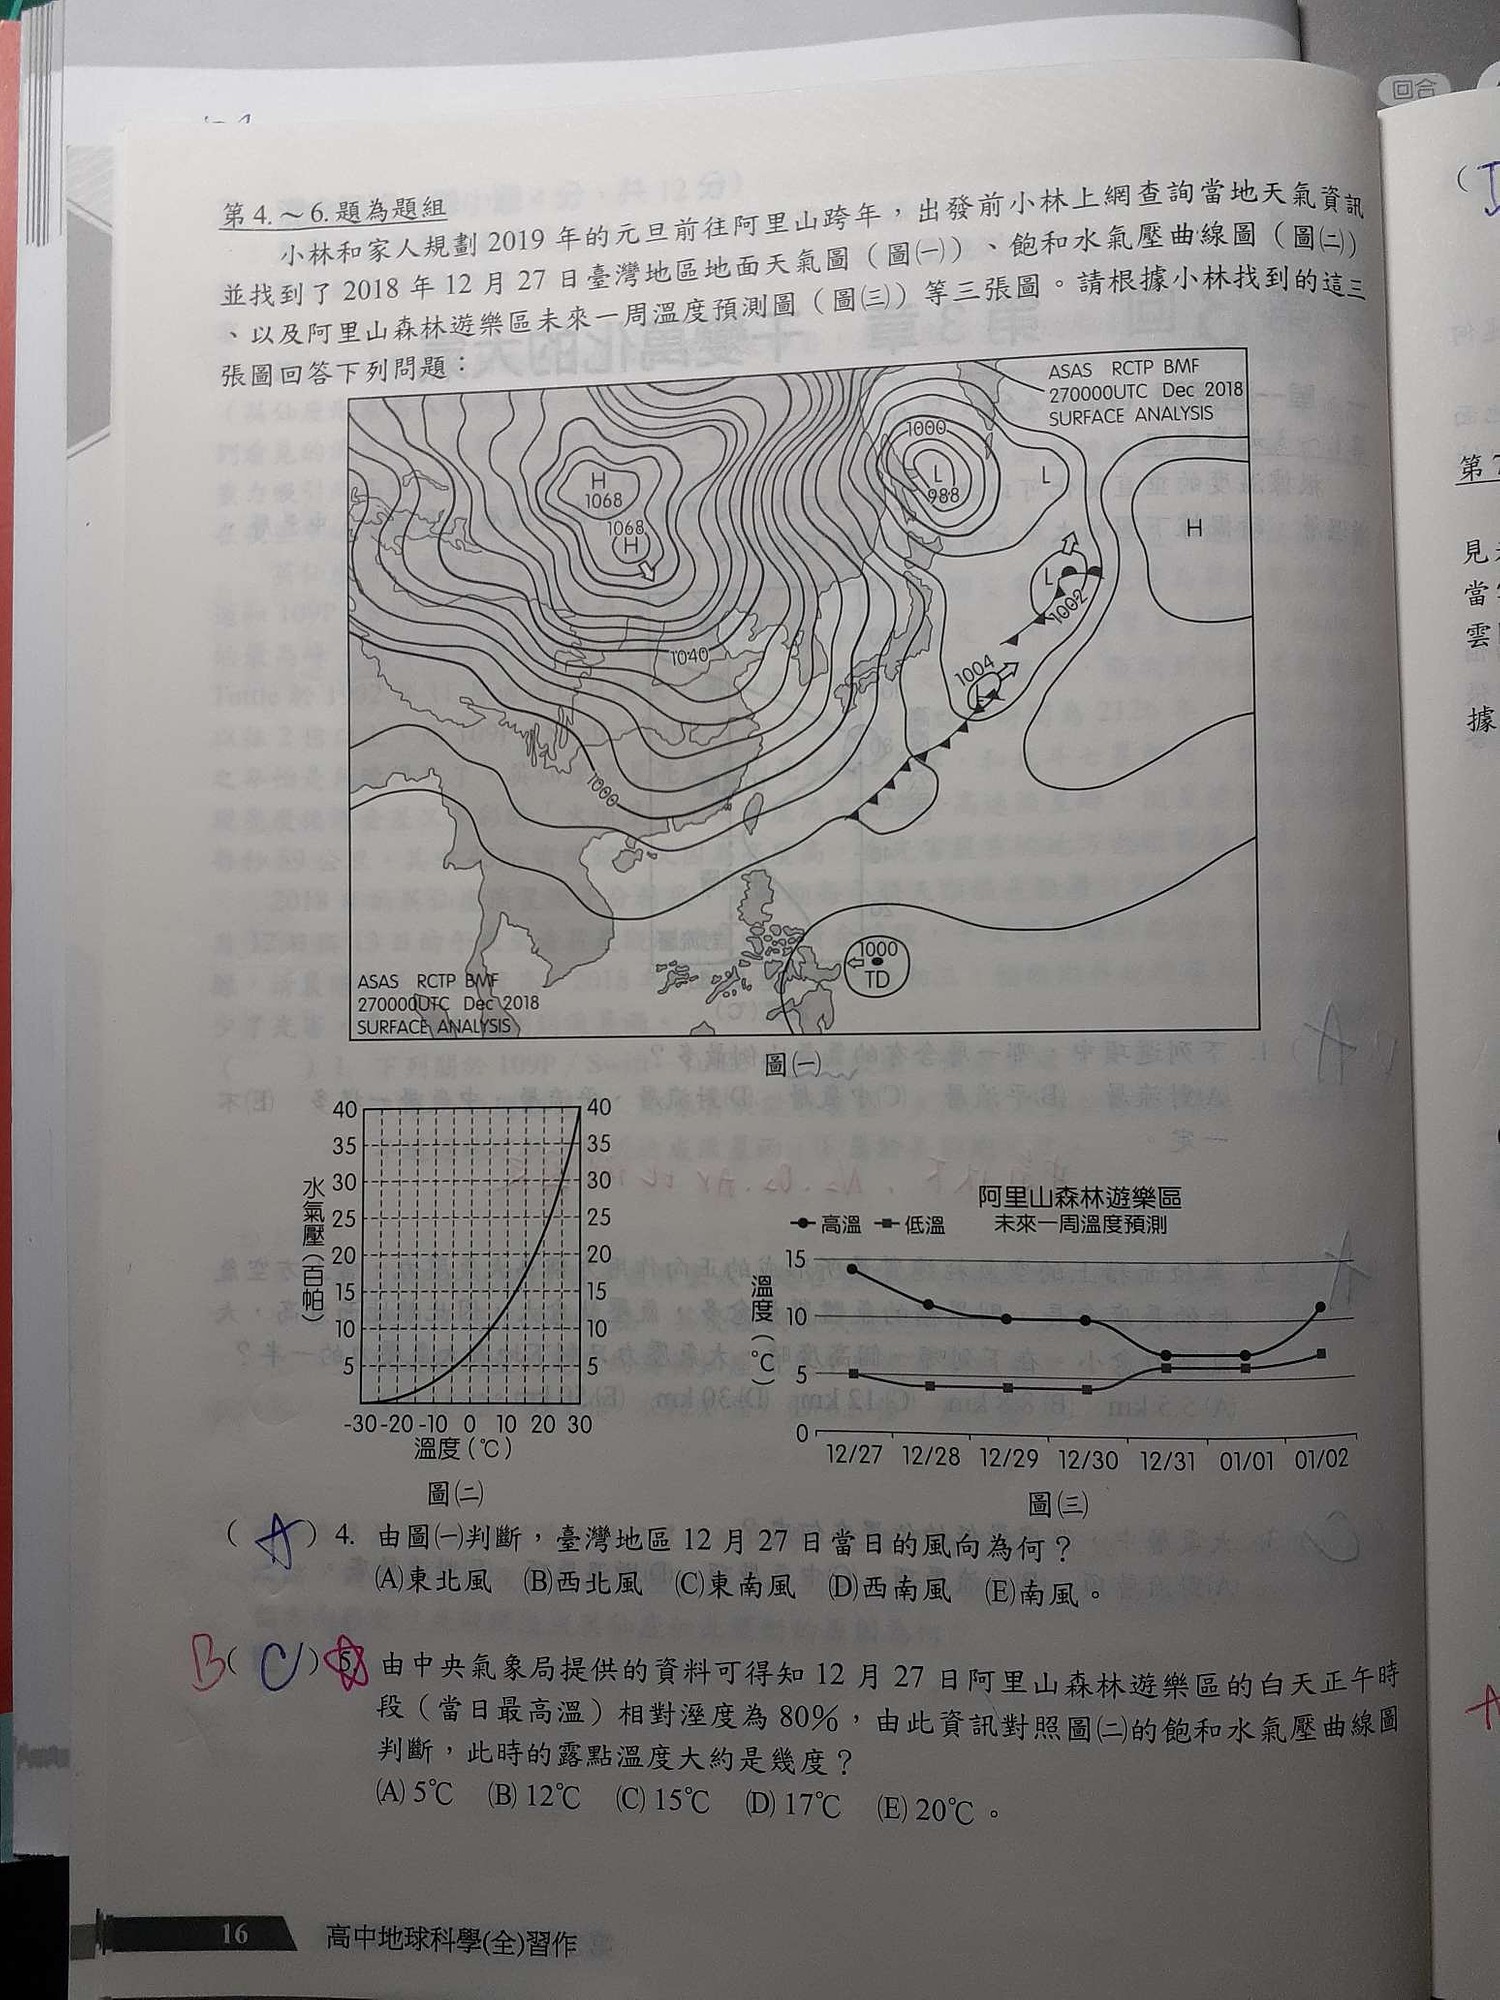 回合
第4.～6.題為題組
小林和家人規劃2019年的元旦前往阿里山跨年，出發前小林上網查詢當地天氣資訊
並找到了2018年12月27日臺灣地區地面天氣圖（圖㈠）、飽和水氣壓曲線圖（圖㈡）
、以及阿里山森林遊樂區未來一周溫度預測圖（圖㈢）等三張圖。請根據小林找到的這三
張圖回答下列問題：
ASAS RCTP BMF
270000UTC Dec 2018
SURFACE ANALYSIS
1000
L
988
L
H
1068
1068
H
H
L
1002
1040
1004
L
1000
1000
TD
ASAS RCTP BMF
270000UTC Dec 2018
SURFACE ANALYSIS
圖㈠
40 40
35 35
30 30
25 25
20 20
15 15
10 10
5 5
水氣壓（百帕）
-30 -20 -10 0 10 20 30
溫度(℃)
圖㈡
阿里山森林遊樂區
未來一周溫度預測
高溫 低溫
15
10
5
0
溫度（℃）
12/27 12/28 12/29 12/30 12/31 01/01 01/02
圖㈢
（ A ）4. 由圖㈠判斷，臺灣地區12月27日當日的風向為何？
(A)東北風 (B)西北風 (C)東南風 (D)西南風 (E)南風。
B（ C ）5. 由中央氣象局提供的資料可得知12月27日阿里山森林遊樂區的白天正午時
段（當日最高溫）相對溼度為80%，由此資訊對照圖㈡的飽和水氣壓曲線圖
判斷，此時的露點溫度大約是幾度？
(A) 5℃ (B) 12℃ (C) 15℃ (D) 17℃ (E) 20℃。
16 高中地球科學(全)習作
第7
見
當
雲
據